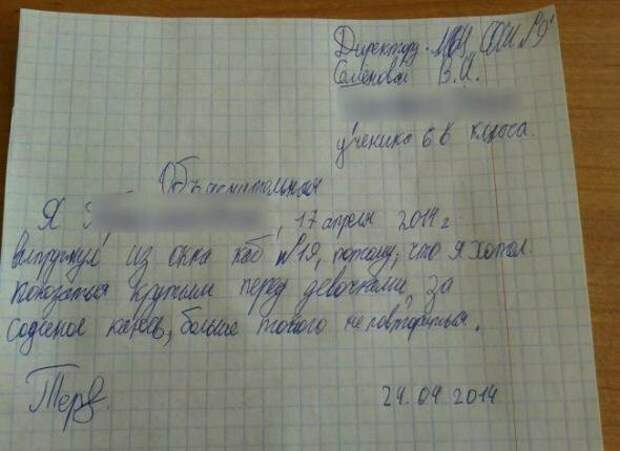 Директору МБУ СОШ №9
Семёновой В.И.
ученика 6 в класса.
Объяснительная
Я , 17 апреля 2014 г
выпрыгнул из окна каб №19, потому, что я хотел
показаться крутым перед девочками, за
содеяное каюсь, больше такого не повториться.
24.04 2014